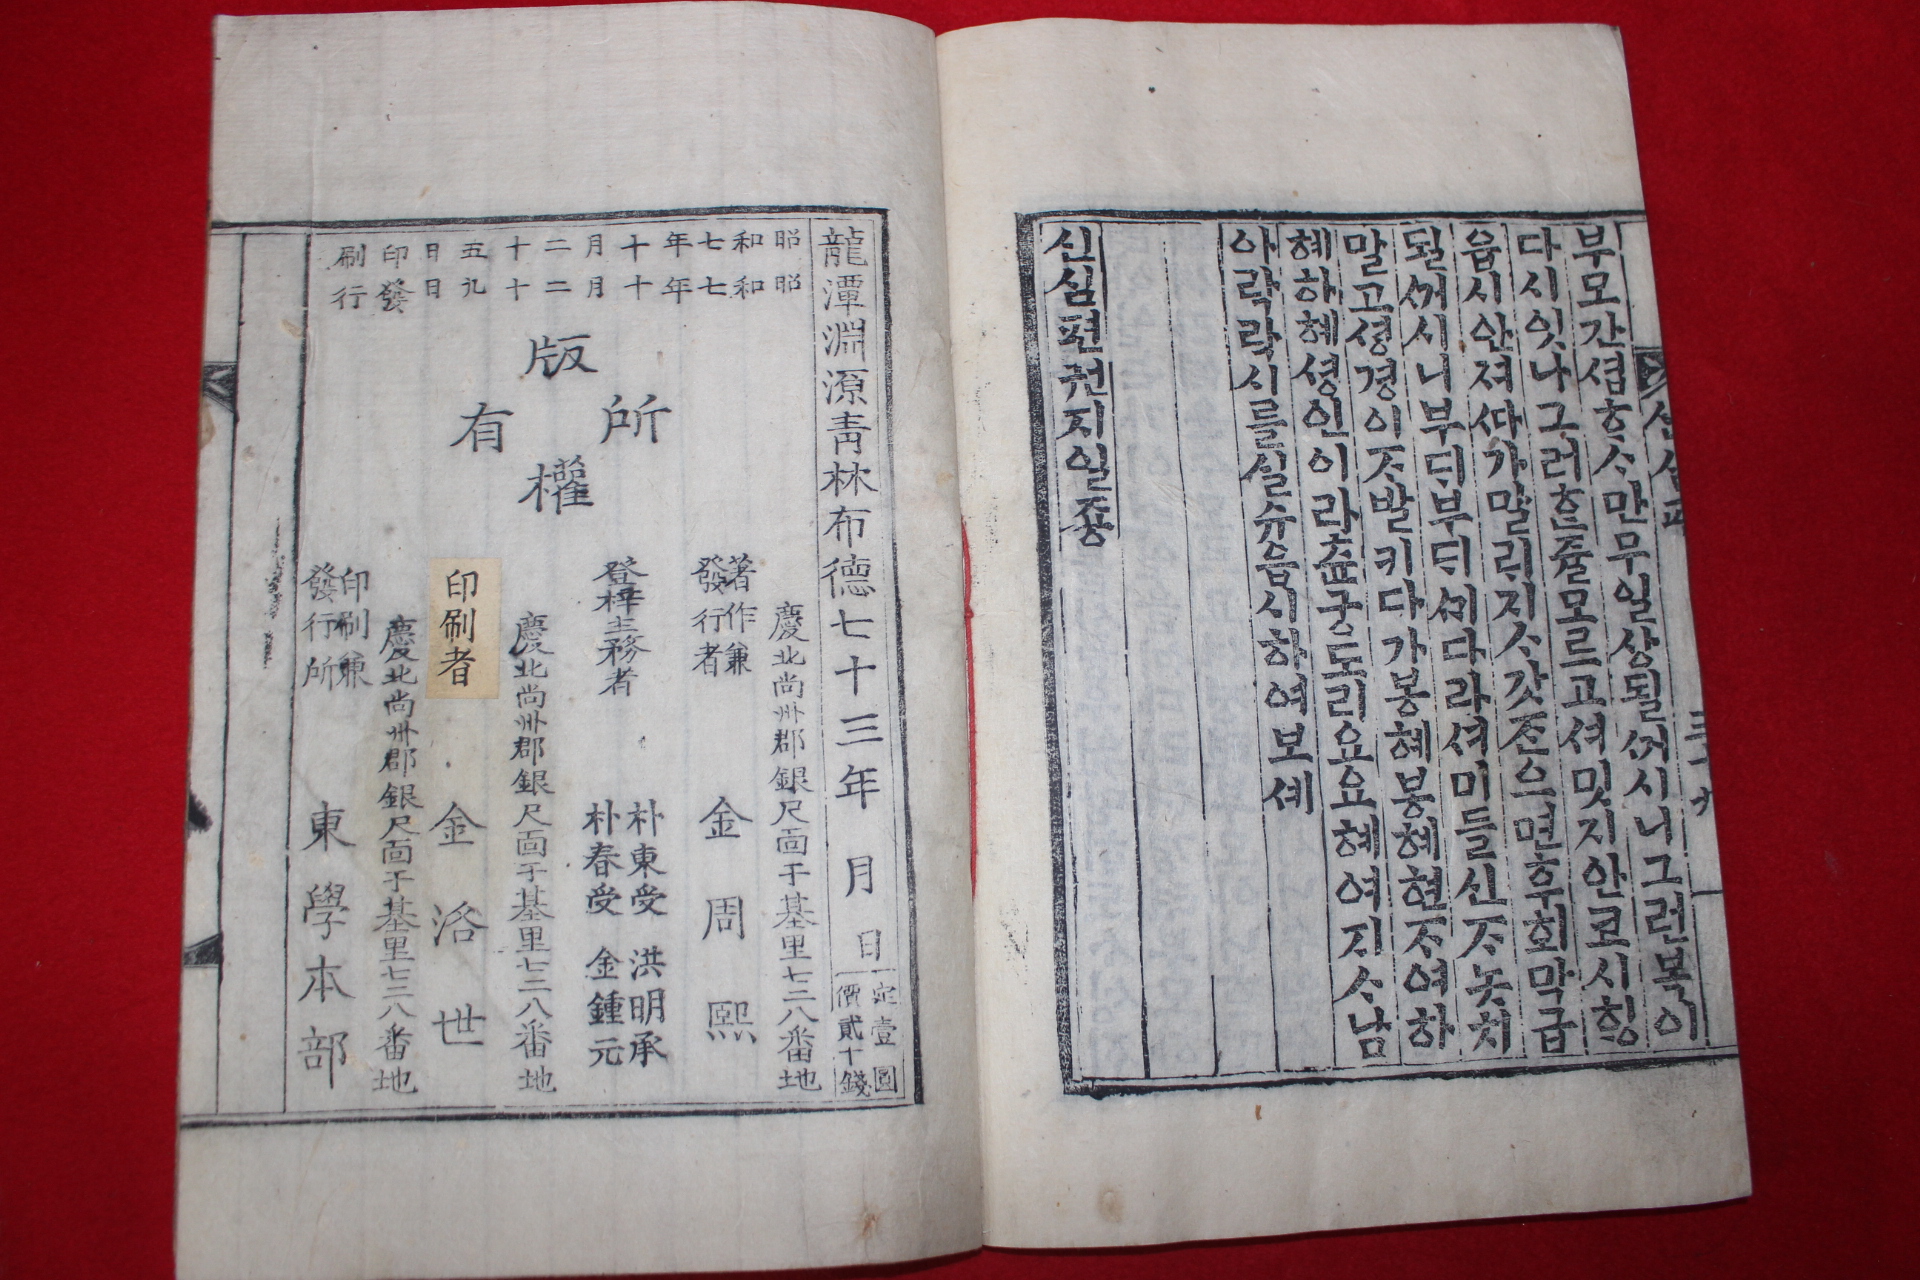 부모간셥ᄒᆞᄉᆞ만무일상될ᄭᅥ시니그런복이
다시잇나그러ᄒᆞᆫ쥴모르고셔밋지안코시ᄒᆡᆼ
읍시안져ᄯᅡ가말리지ᄉᆞ갓ᄌᆞᆫ으면후회막급
될ᄭᅥ시니부ᄃᆡ부ᄃᆡᄭᆡ다라셔미들신ᄌᆞ놋치
말고셩경이ᄌᆞ발키다가봉혜봉혜현ᄌᆞ여하
혜하혜셩인이라츈궁도리요요혜여지ᄉᆞ남
아락락시를실슈읍시하여보셰
신심편권지일죵
신심편
三十九
龍潭淵源青林布德七十三年 月 日
定價 壹圓貳十錢
昭和七年十月二十五日印刷
昭和七年十月二十九日發行
版權所有
慶北尙州郡銀尺面于基里七三八番地
著作兼發行者 金周熙
登梓主務者 朴東受 洪明承
朴春受 金鍾元
慶北尙州郡銀尺面于基里七三八番地
印刷者 金洛世
慶北尙州郡銀尺面于基里七三八番地
印刷兼發行所 東學本部